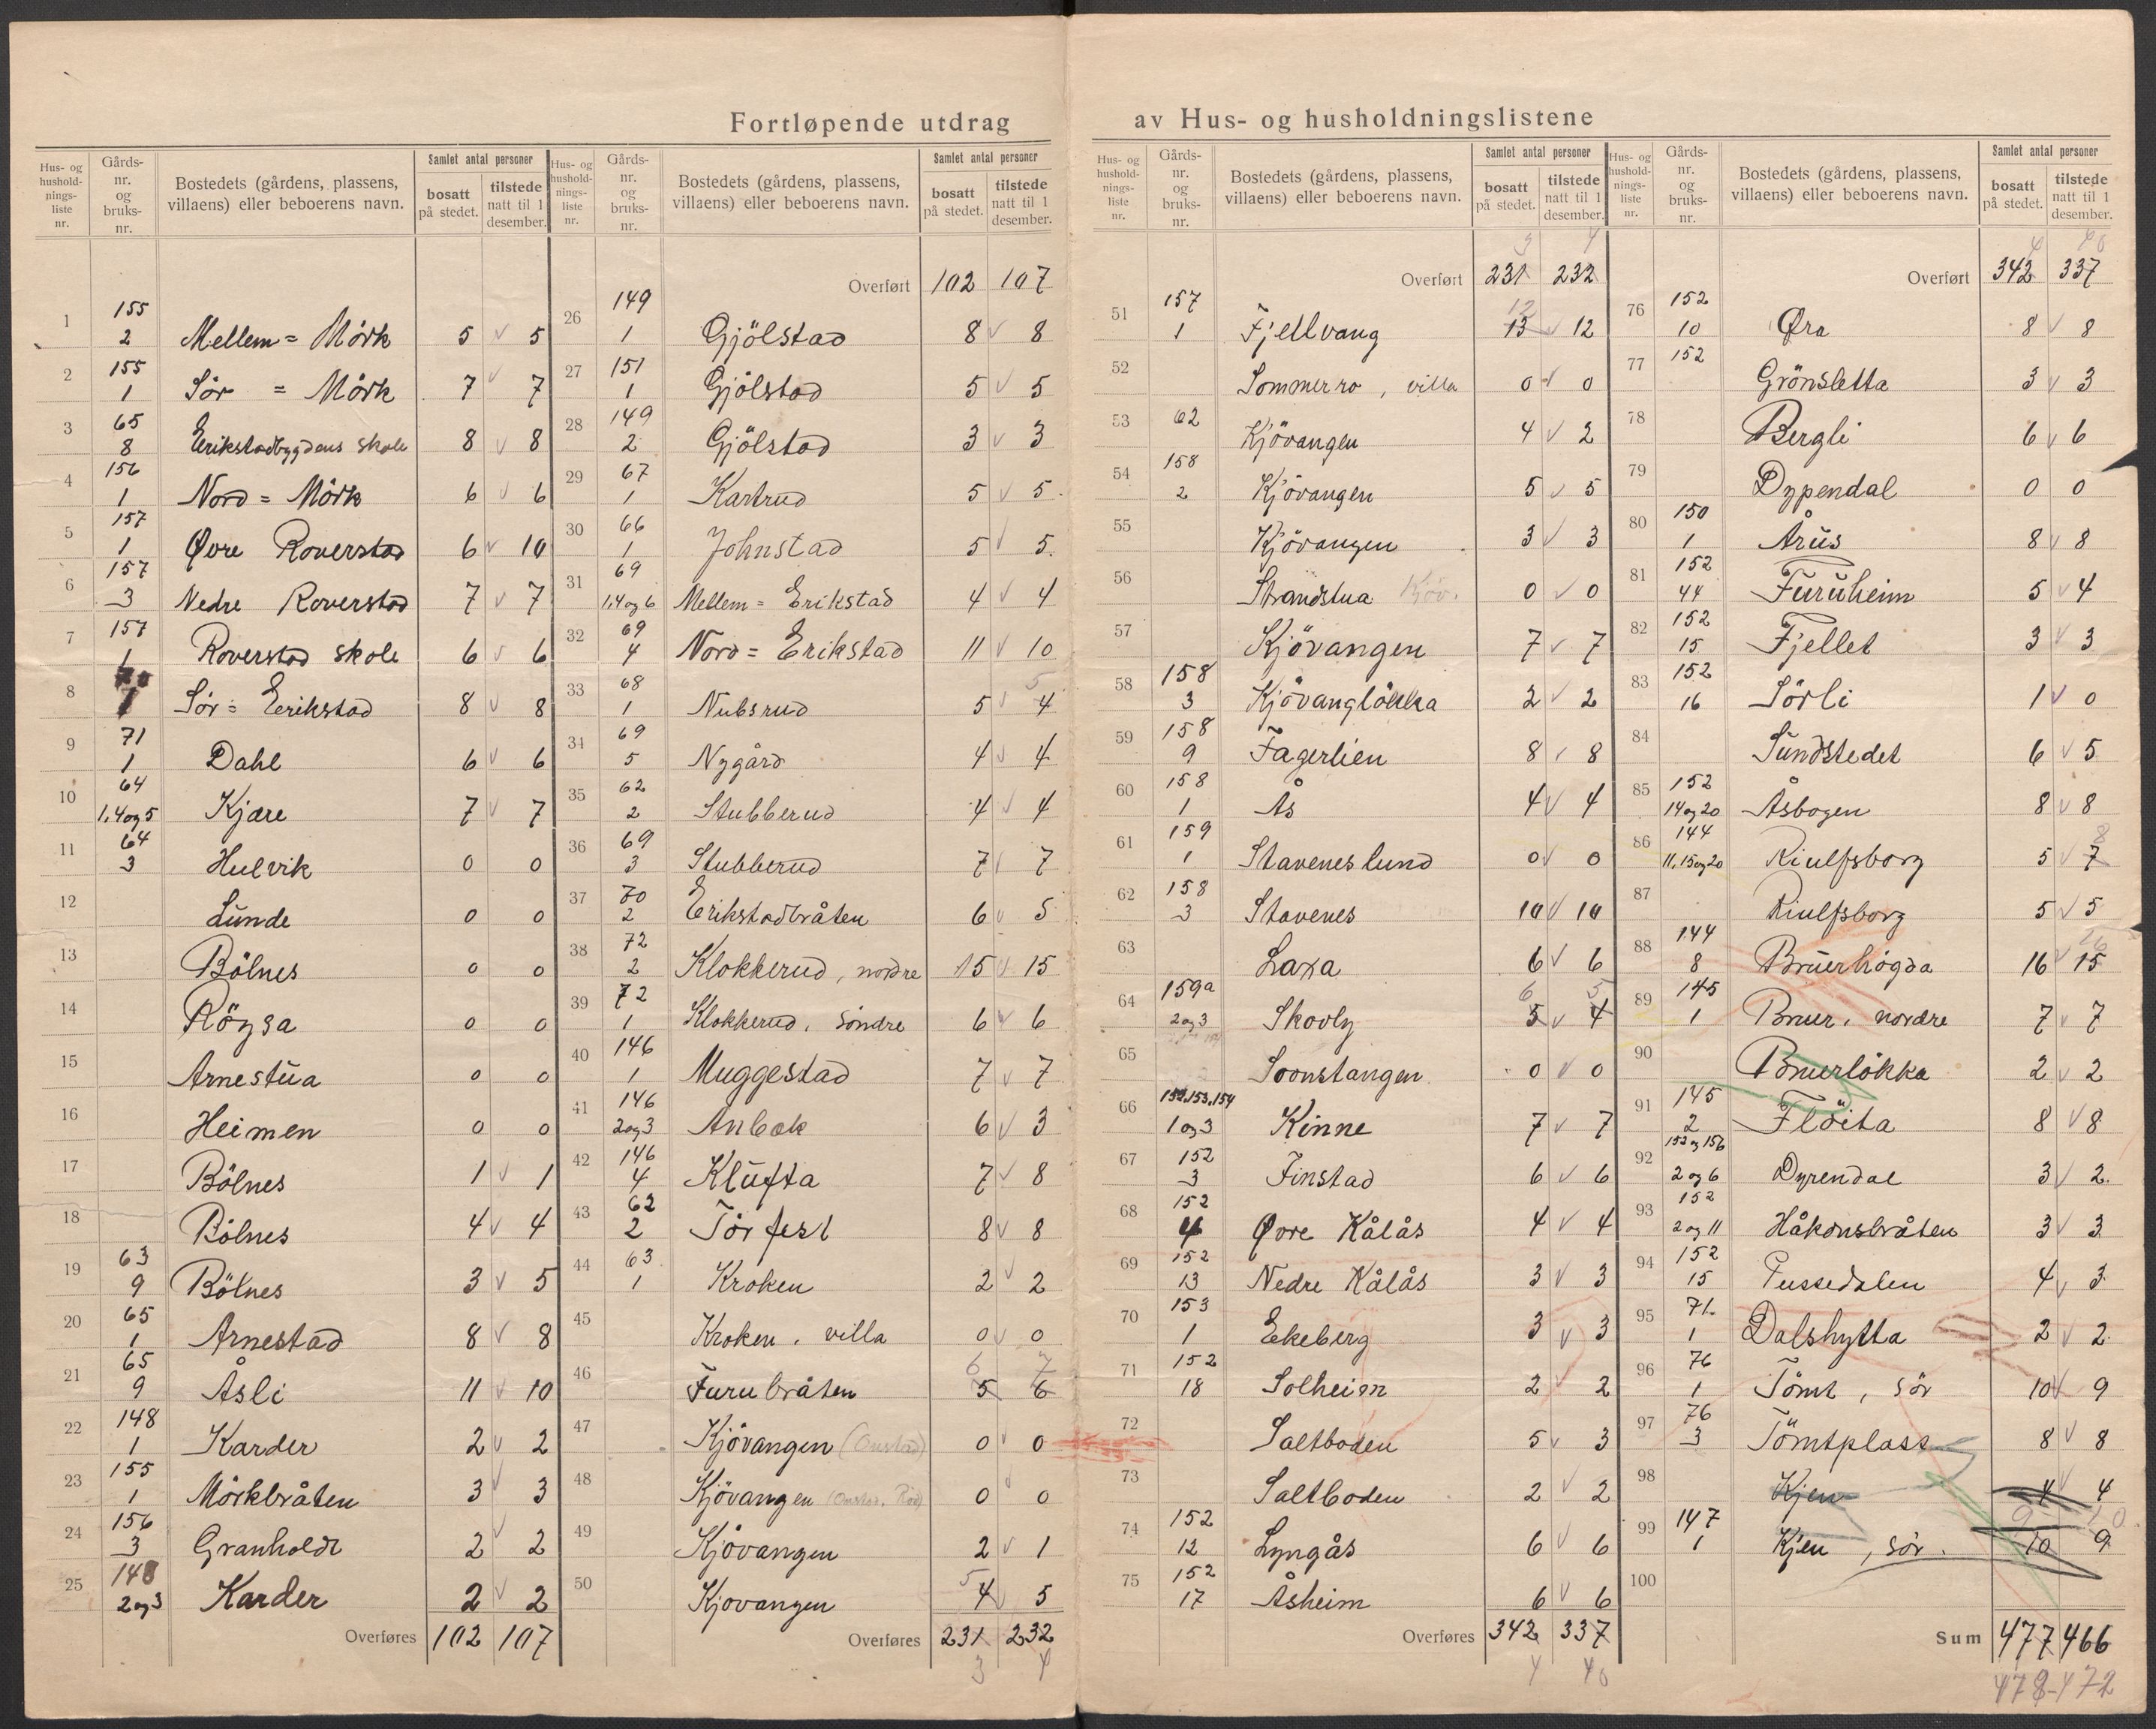 Fortløpende utdrag av Hus- og husholdningslistene
Hus- og husholdnings- liste nr. | Gårds- nr. og bruks- nr. | Bostedets (gårdens, plassens, villaens) eller beboerens navn. | Samlet antal personer bosatt på stedet. | tilstede natt til 1 desember.
1 155 2 Mellem = Mörk 5 v 5
2 155 1 Sör = Mörk 7 v 7
3 65 8 Erikstadbygdens skole 8 v 8
4 156 1 Nord = Mörk 6 v 6
5 157 1 Øvre Roverstad 6 v 10
6 157 3 Nedre Roverstad 7 v 7
7 157 1 Roverstad skole 6 v 6
8 70 1 Sör = Erikstad 8 v 8
9 71 1 Dahl 6 v 6
10 64 1,4 og 5 Kjære 7 v 7
11 64 3 Hulvik 0 0
12 Lunde 0 0
13 Bölnes 0 0
14 Röysa 0 0
15 Arnestua 0 0
16 Heimen 0 0
17 Bölnes 1 v 1
18 Bölnes 4 v 4
19 63 9 Bölnes 3 v 5
20 65 1 Arnestad 8 v 8
21 65 9 Åsli 11 v 10
22 148 1 Karder 2 v 2
23 155 1 Mörkbråten 3 v 3
24 156 3 Granholdt 2 v 2
25 148 2 og 3 Karder 2 v 2
Overføres 102 107
Hus- og husholdnings- liste nr. | Gårds- nr. og bruks- nr. | Bostedets (gårdens, plassens, villaens) eller beboerens navn. | Samlet antal personer bosatt på stedet. | tilstede natt til 1 desember.
Overført 102 107
26 149 1 Gjölstad 8 v 8
27 151 1 Gjölstad 5 v 5
28 149 2 Gjölstad 3 v 3
29 67 1 Kartrud 5 v 5
30 66 1 Johnstad 5 v 5
31 69 1,4 og 6 Mellem = Erikstad 4 v 4
32 69 4 Nord = Erikstad 11 v 10
33 68 1 Nubsrud 5 v 4 5
34 69 5 Nygård 4 v 4
35 62 2 Stubberud 4 v 4
36 69 3 Stubberud 7 v 7
37 70 2 Erikstadbråten 6 v 5
38 72 2 Klokkerud, nordre 15 v 15
39 72 1 Klokkerud, söndre 6 v 6
40 146 1 Muggestad 7 v 7
41 146 2 og 3 Anbæk 6 v 3
42 146 4 Klufta 7 v 8
43 62 2 Törfest 8 v 8
44 63 1 Kroken 2 v 2
45 Kroken, villa 0 v 0
46 Furubråten 5 6 6 7
47 Kjövangen (Onstad) 0 v 0
48 Kjövangen (Onstad, Röd) 0 v 0
49 Kjövangen 2 v 1
50 Kjövangen 5 4 v 5
Overføres 231 232
3 4
Hus- og husholdnings- liste nr. | Gårds- nr. og bruks- nr. | Bostedets (gårdens, plassens, villaens) eller beboerens navn. | Samlet antal personer bosatt på stedet. | tilstede natt til 1 desember.
3 4
Overført 231 232
51 157 1 Fjellvang 12 13 v 12
52 Sommerro, villa 0 v 0
53 62 Kjövangen 4 v 2
54 158 2 Kjövangen 5 v 5
55 Kjövangen 3 v 3
56 Strandstua Kjöv. 0 v 0
57 Kjövangen 7 v 7
58 158 3 Kjövanglökka 2 v 2
59 158 9 Fagerlien 8 v 8
60 158 1 Ås 4 v 4
61 159 1 Staveneslund 0 v 0
62 158 3 Stavenes 10 v 10
63 Laxa 6 v 6
64 159a 2 og 3 Skovly 6 5 5 v 4
65 Soonstangen 0 v 0
66 152.153.154 1 og 3 Kinne 7 v 7
67 152 3 Finstad 6 v 6
68 152 4 Øvre Kålås 4 v 4
69 152 13 Nedre Kålås 3 v 3
70 153 1 Ekeberg 3 v 3
71 152 18 Solheim 2 v 2
72 Saltboden 5 v 3
73 Saltboden 2 v 2
74 152 12 Lyngås 6 v 6
75 152 17 Åsheim 6 v 6
Overføres 342 337
4 40
Hus- og husholdnings- liste nr. | Gårds- nr. og bruks- nr. | Bostedets (gårdens, plassens, villaens) eller beboerens navn. | Samlet antal personer bosatt på stedet. | tilstede natt til 1 desember.
4 40
Overført 342 337
76 152 10 Øra 8 v 8
77 152 Grönsletta 3 v 3
78 Bergli 6 v 6
79 Dypendal 0 0
80 150 1 Årus 8 v 8
81 152 44 Furuheim 5 v 4
82 152 15 Fjellet 3 v 3
83 152 16 Sörli 1 v 0
84 Sundstedet 6 v 5
85 152 14 og 20 Åsbogen 8 v 8
86 144 11, 15 og 20 Riulfsborg 5 v 7 8
87 Riulfsborg 5 v 5
88 144 8 Bruerhögda 16 v 15 16
89 145 1 Bruer, nordre 7 v 7
90 Bruerlökka 2 v 2
91 145 2 Flöita 8 v 8
92 152 og 156 2 og 6 Dyrendal 3 v 2
93 152 2 og 11 Håkonsbråten 3 v 3
94 152 15 Tussedalen 4 v 3
95 71 1 Dalshytta 2 v 2
96 76 1 Tömt, sör 10 v 9
97 76 3 Tömtplass 8 v 8
98 Kjen 4 v 4
99 147 1 Kjen, sör. 9 10 10 9
100
Sum 477 466
478-472